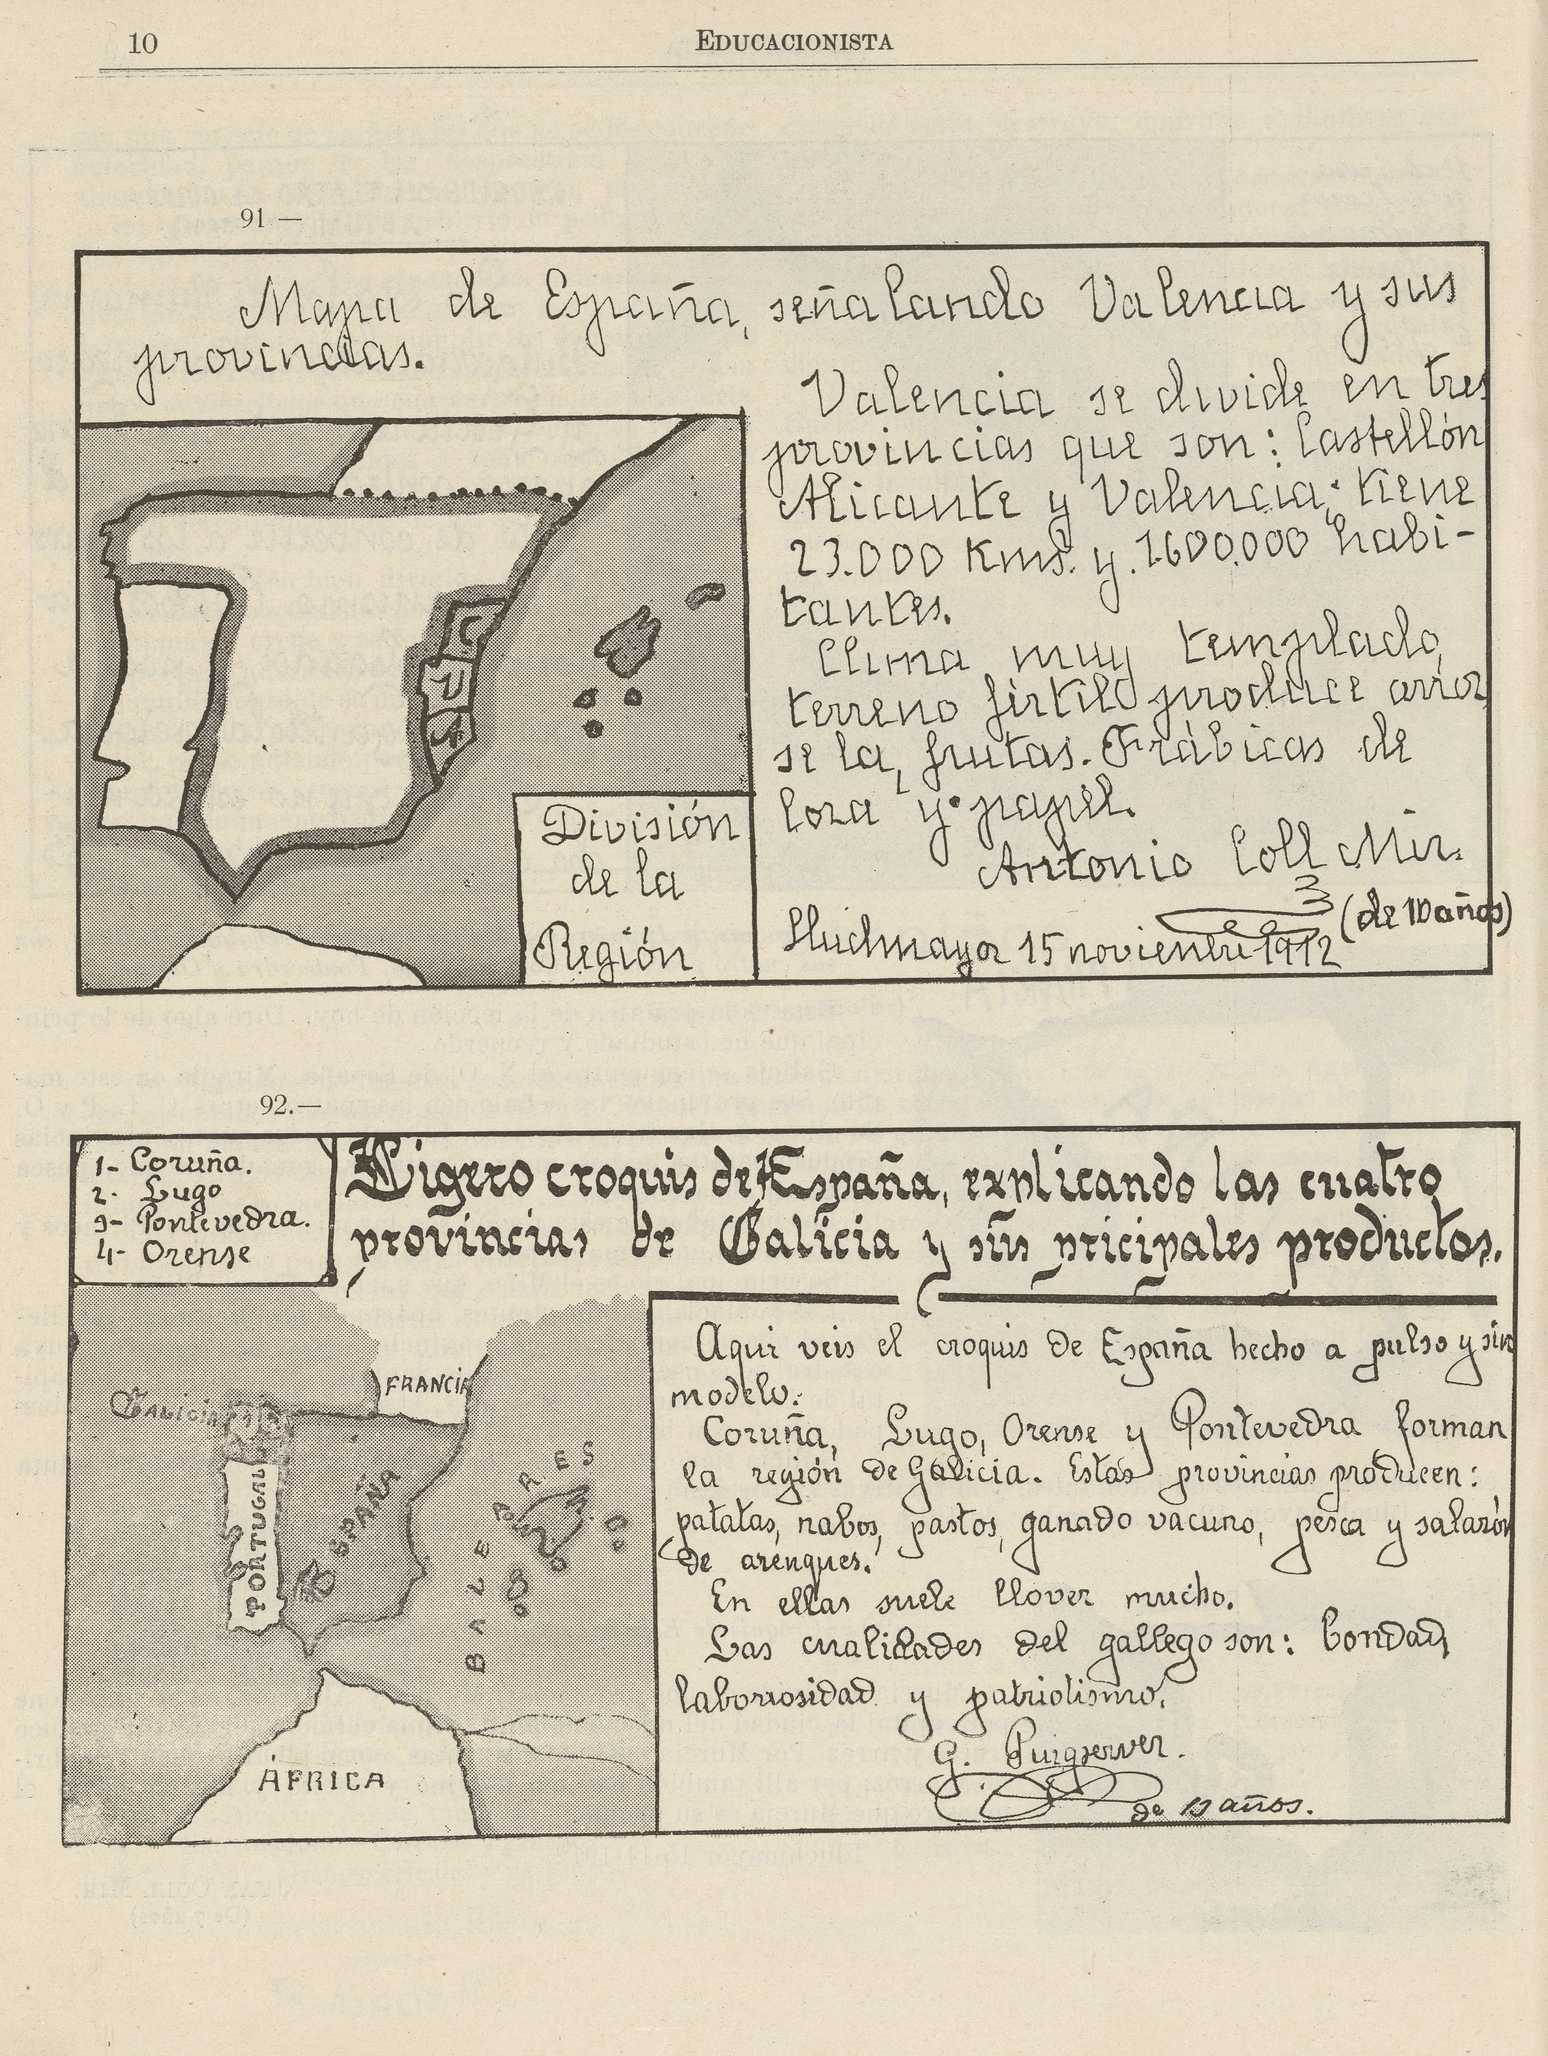 10
EDUCACIONISTA
91 —
Mapa de España, señalando Valencia y sus
provincias.
Valencia se divide en tres
provincias que son: Castellón
Alicante y Valencia; tiene
23.000 Kms. y 1.600.000 habi-
tantes.
Clima muy templado,
terreno fértil produce arroz,
se la, frutas. Frábicas de
loza y papel.
Antonio Coll Mir.
(de 10 años)
Lluchmayor 15 noviembre 1912
C
V
A
División
de la
Región
92.—
1- Coruña.
2- Lugo
3- Pontevedra.
4- Orense
Ligero croquis de España, explicando las cuatro
provincias de Galicia y sus pricipales productos.
Aqui veis el croquis de España hecho a pulso y sin
modelo.
Coruña, Lugo, Orense y Pontevedra forman
la región de Galicia. Estas provincias producen:
patatas, nabos, pastos, ganado vacuno, pesca y salazón
de arenques.
En ellas suele llover mucho.
Las cualidades del gallego son: bondad,
laborrosidad y patriotismo.
G. Puigserver.
de 13 años.
GALICIA
FRANCIA
PORTUGAL
ESPAÑA
BALEARES
ÁFRICA